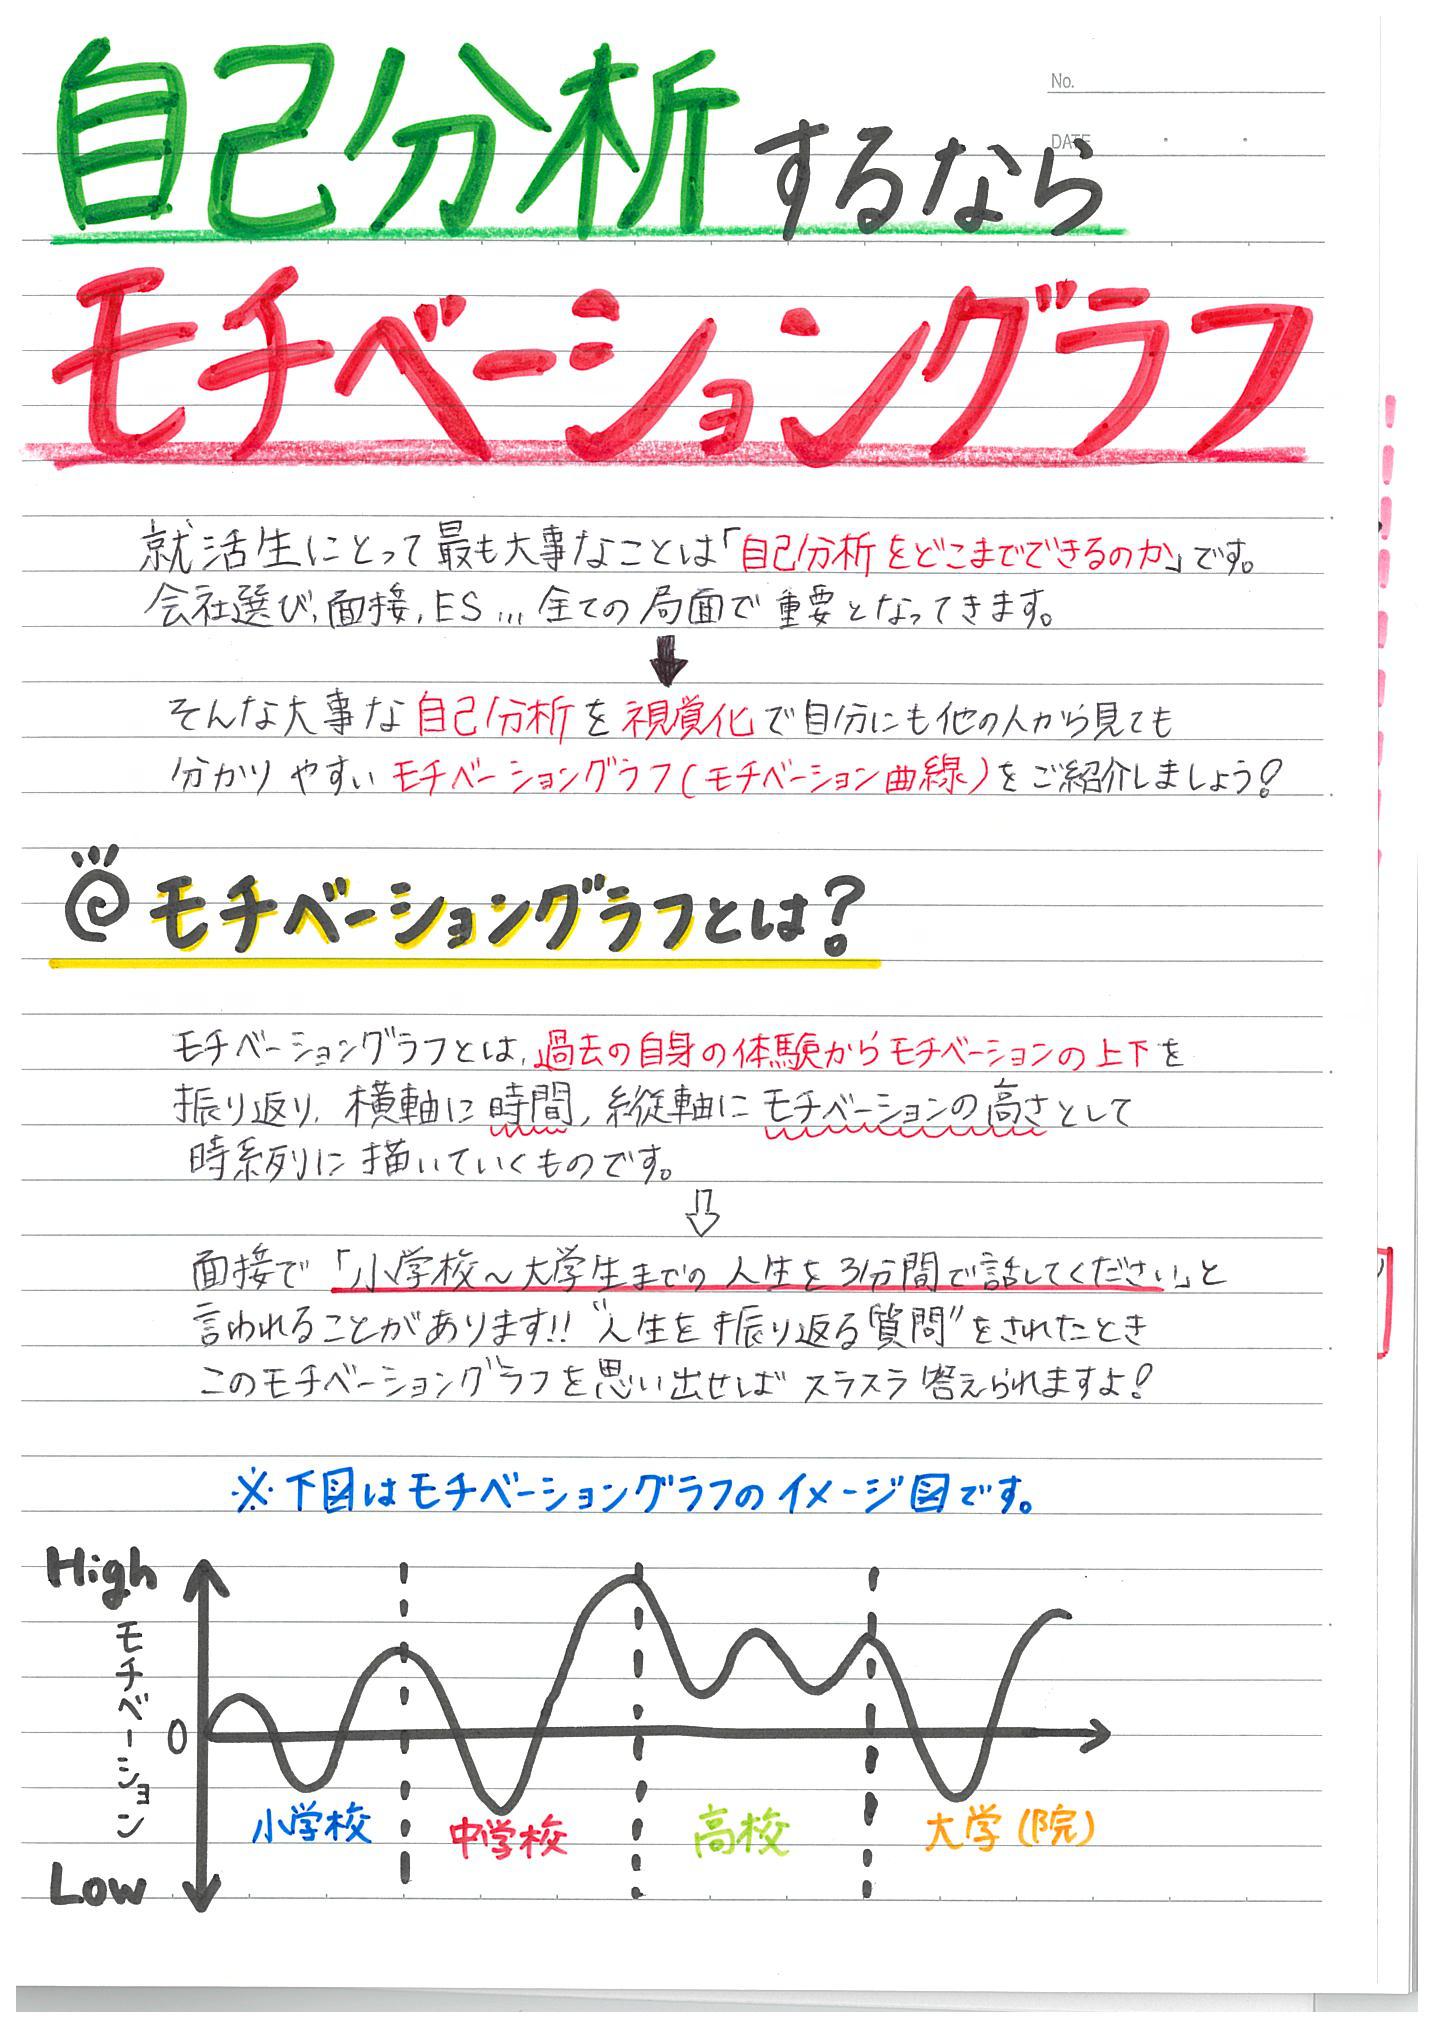 No.
DATE
自己分析するなら
モチベーショングラフ
就活生にとって最も大事なことは「自己分析をどこまでできるのか」です。
会社選び,面接,ES…全ての局面で重要となってきます。
そんな大事な自己分析を視覚化で自分にも他の人から見ても
分かりやすいモチベーショングラフ(モチベーション曲線)をご紹介しましょう!
モチベーショングラフとは?
モチベーショングラフとは,過去の自身の体験からモチベーションの上下を
振り返り,横軸に時間,縦軸にモチベーションの高さとして
時系列に描いていくものです。
面接で「小学校~大学生までの人生を3分間で話してください」と
言われることがあります!!"人生を振り返る質問"をされたとき
このモチベーショングラフを思い出せばスラスラ答えられますよ!
※下図はモチベーショングラフのイメージ図です。
High
モチベーション
0
小学校 中学校 高校 大学(院)
Low